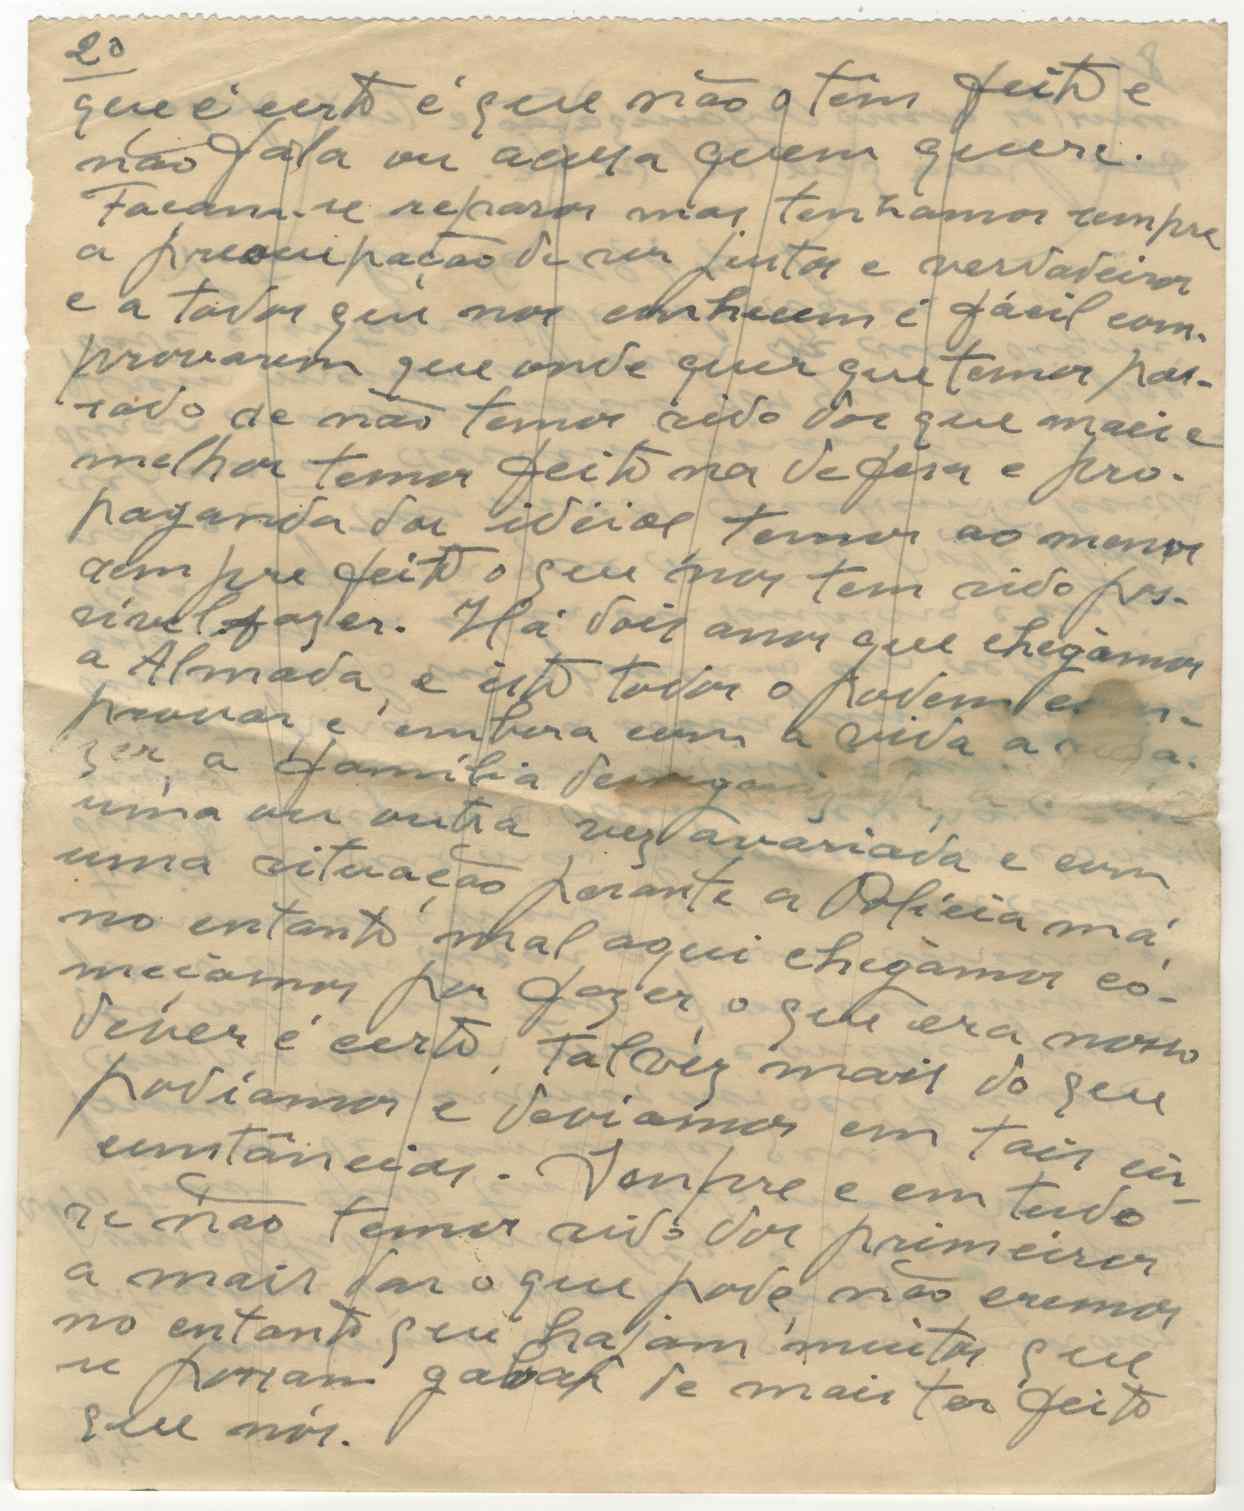 2º
que é certo é que não o tem feito e
não fala ou acusa quem quere.
Façam-se reparos mas tenhamos sempre
a preocupação de ser justos e verdadeiros
e a todos que nos conhecem é fácil com-
provarem que onde quer que temos pas-
sado se não temos sido dos que mais e
melhor temos feito na defesa e pro-
paganda dos idéias temos ao menos
sempre feito o que nos tem sido pos-
sível fazer. Há dois anos que chegámos
a Almada, e isto todos o podem
provar e embora com a vida a
zer, a família desorganizada,
uma ou outra vez avariada e com
uma situação perante a Polícia má,
no entanto mal aqui chegámos co-
meçámos por fazer, o que era nosso
dever é certo, talvez mais do que
podíamos e devíamos em tais cir-
cunstâncias. Sempre e em tudo
se não temos sido dos primeiros
a mais dar o que pode, não cremos
no entanto que hajam muitos que
se possam gabar de mais ter feito
que nós.